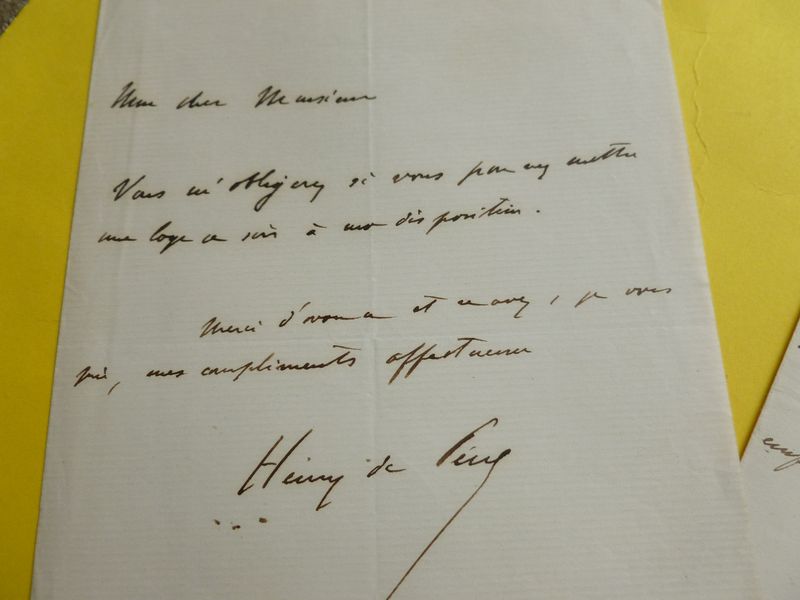 Mon cher Monsieur
Vous m'obligerez si vous pouvez mettre
une loge ce soir à ma disposition.
Merci d'avance et recevez, je vous
prie, mes compliments affectueux
Henry de Pène